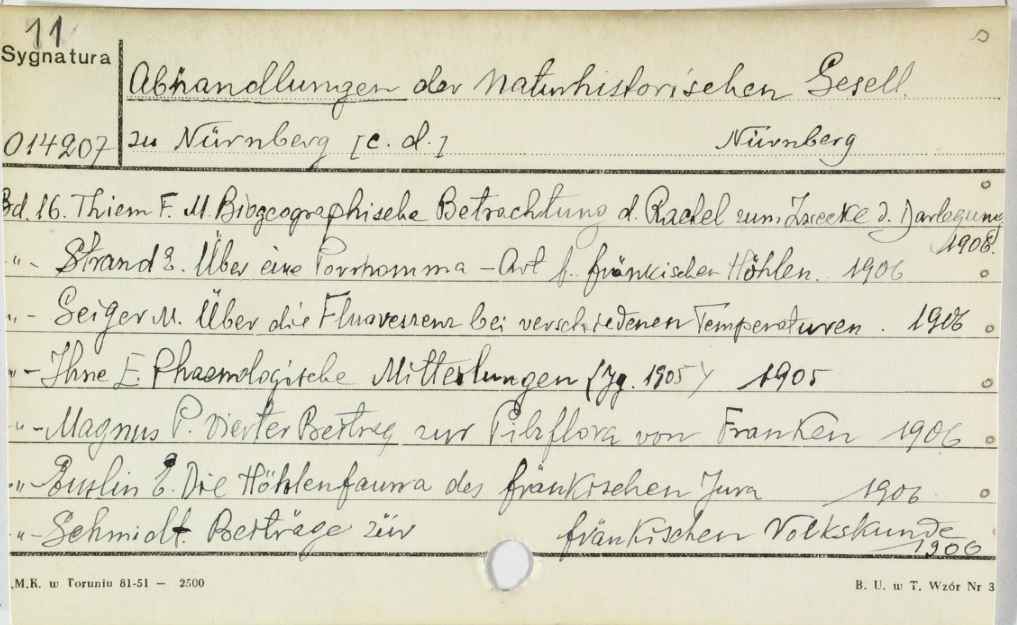 11
Sygnatura
Abhandlungen der Naturhistorischen Gesell.
014207
zu Nürnberg [c. d.] Nürnberg
Bd. 16. Thiem F. M. Biogeographische Betrachtung d. Rachel zum Zwecke d. Darlegung
1906.
"- Strand E. Über eine Porrhomma - Art f. fränkischen Höhlen. 1906
"- Geiger M. Über die Fluoreszenz bei verschiedenen Temperaturen. 1906
"- Ihne E. Phaenologische Mitteilungen (Jg. 1905) 1905
"- Magnus P. Vierter Beitrag zur Pilzflora von Franken 1906
"- Enslin E. Die Höhlenfauna des fränkischen Jura 1906
"- Schmidt. Beiträge zür fränkischen Volkskunde
1906
.M.K. w Toruniu 81-51 — 2500
B. U. w T. Wzór Nr 3